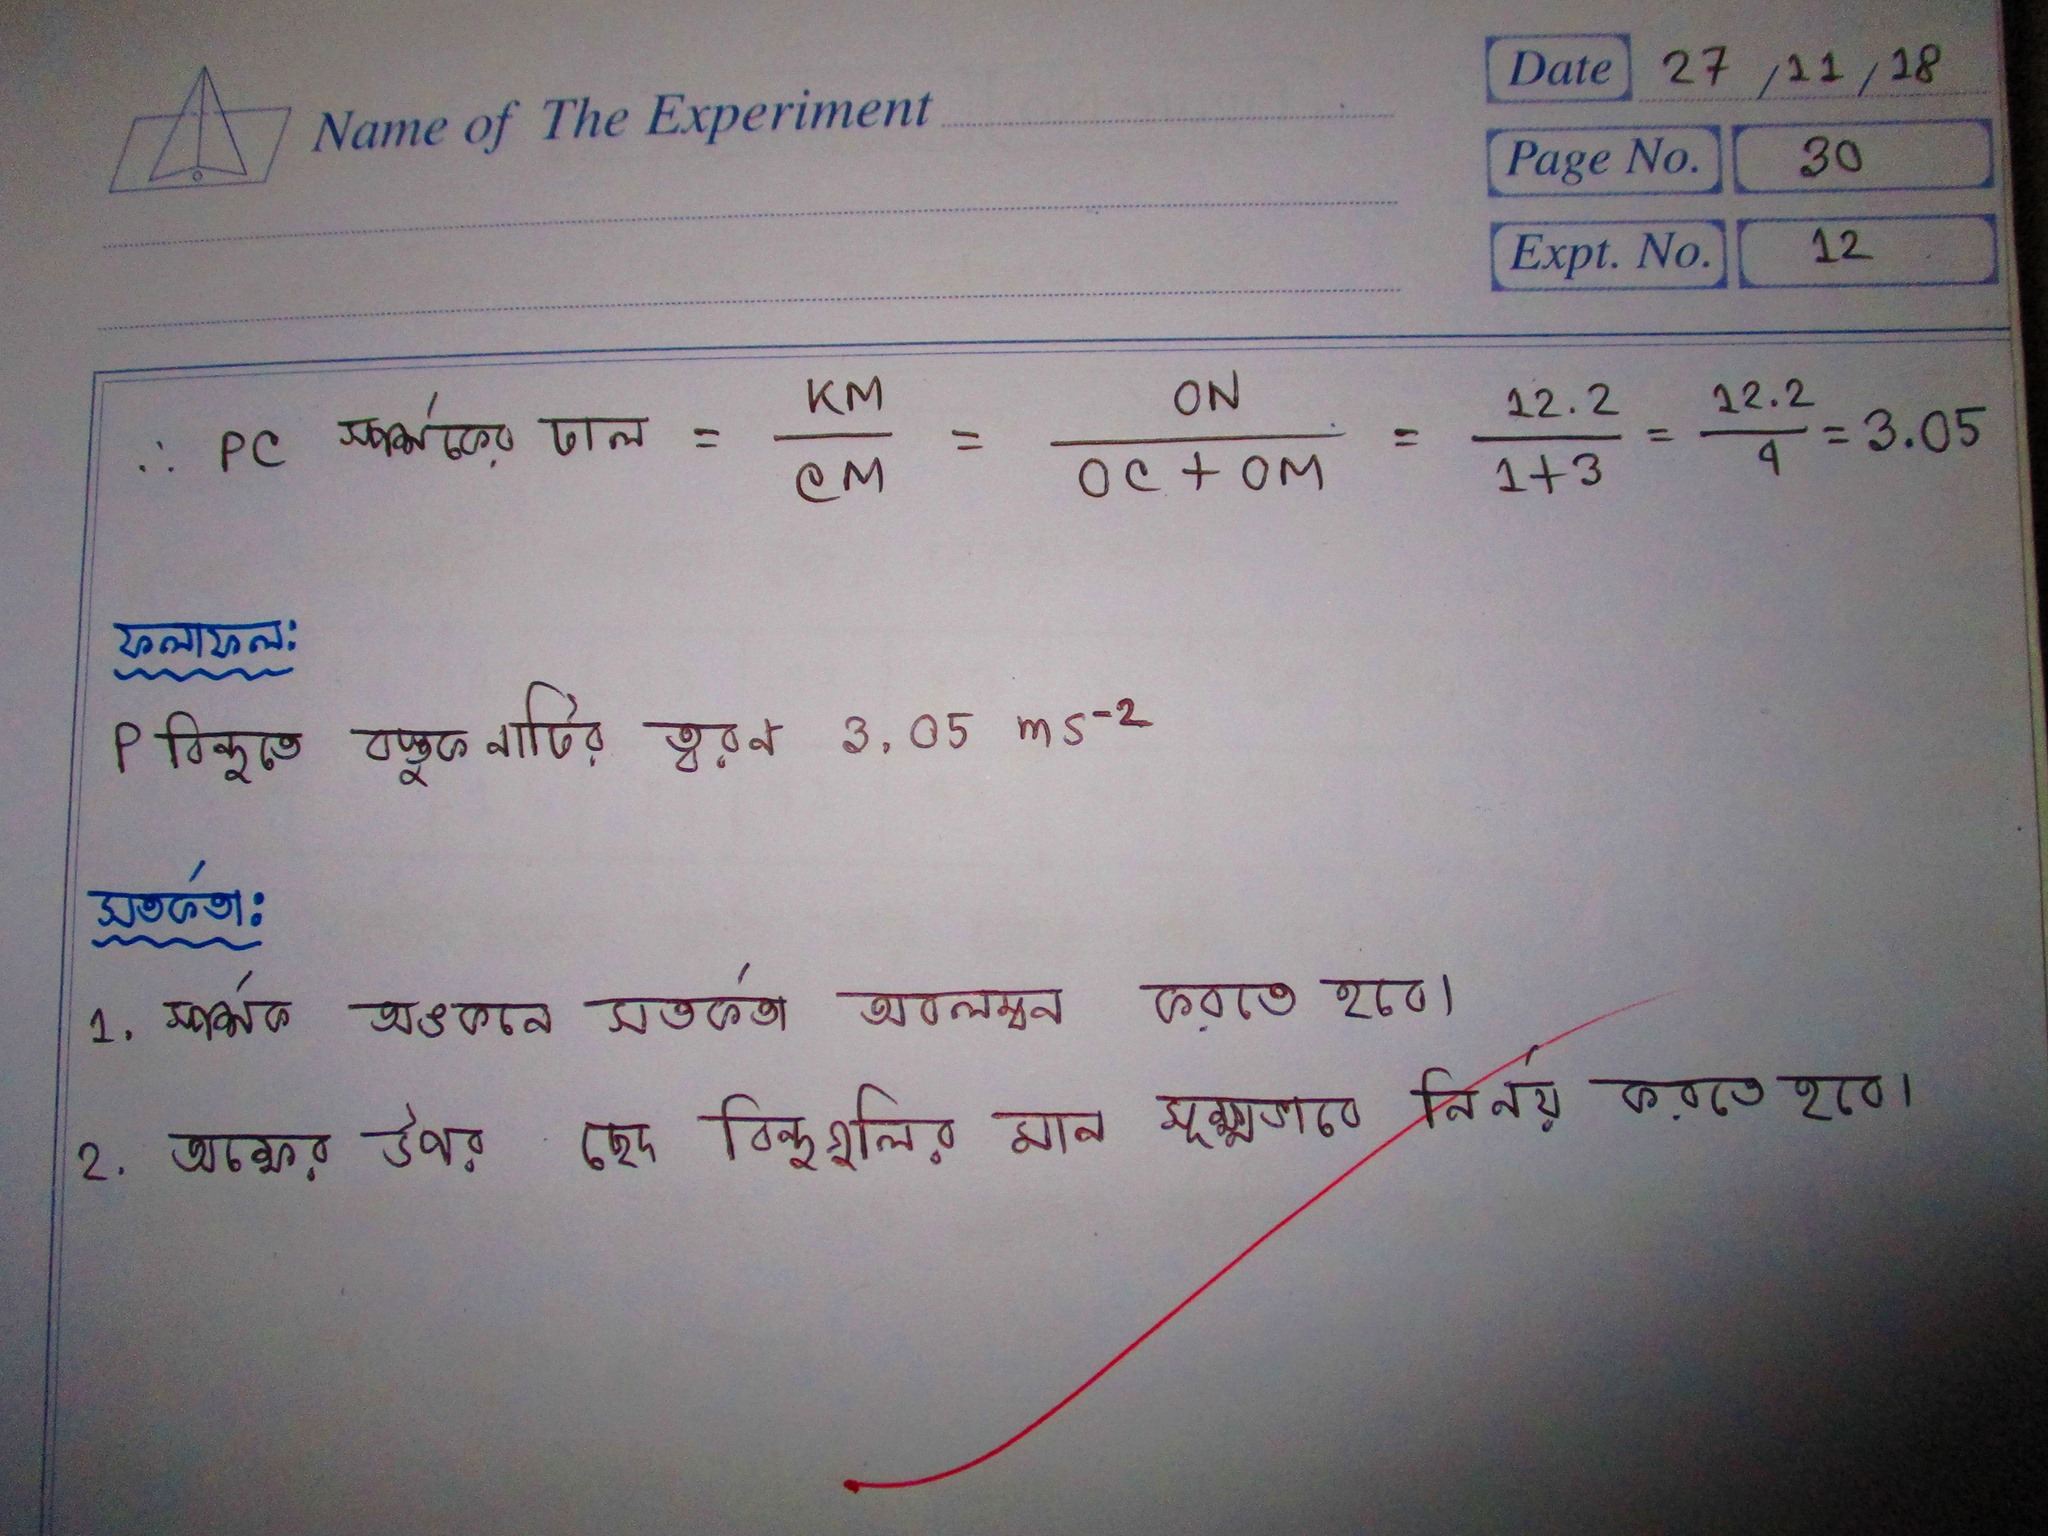 Name of The Experiment
Date 27/11/18
Page No. 30
Expt. No. 12
∴ PC স্পর্শকের ঢাল = KM/CM = ON/(OC + OM) = 12.2/(1+3) = 12.2/4 = 3.05
ফলাফল:
P বিন্দুতে বস্তুকনাটির ত্বরন 3.05 ms⁻²
সতর্কতা:
1. স্পর্শক অঙকনে সতর্কতা অবলম্বন করতে হবে।
2. অক্ষের উপর ছেদ বিন্দুগুলির মান সূক্ষ্মভাবে নির্নয় করতে হবে।